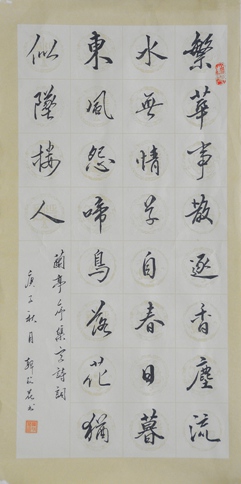 繁華事散逐香塵流
水無情草自春日暮
東風怨啼鳥落花猶
似墜樓人
蘭亭序集字詩詞
庚子秋月